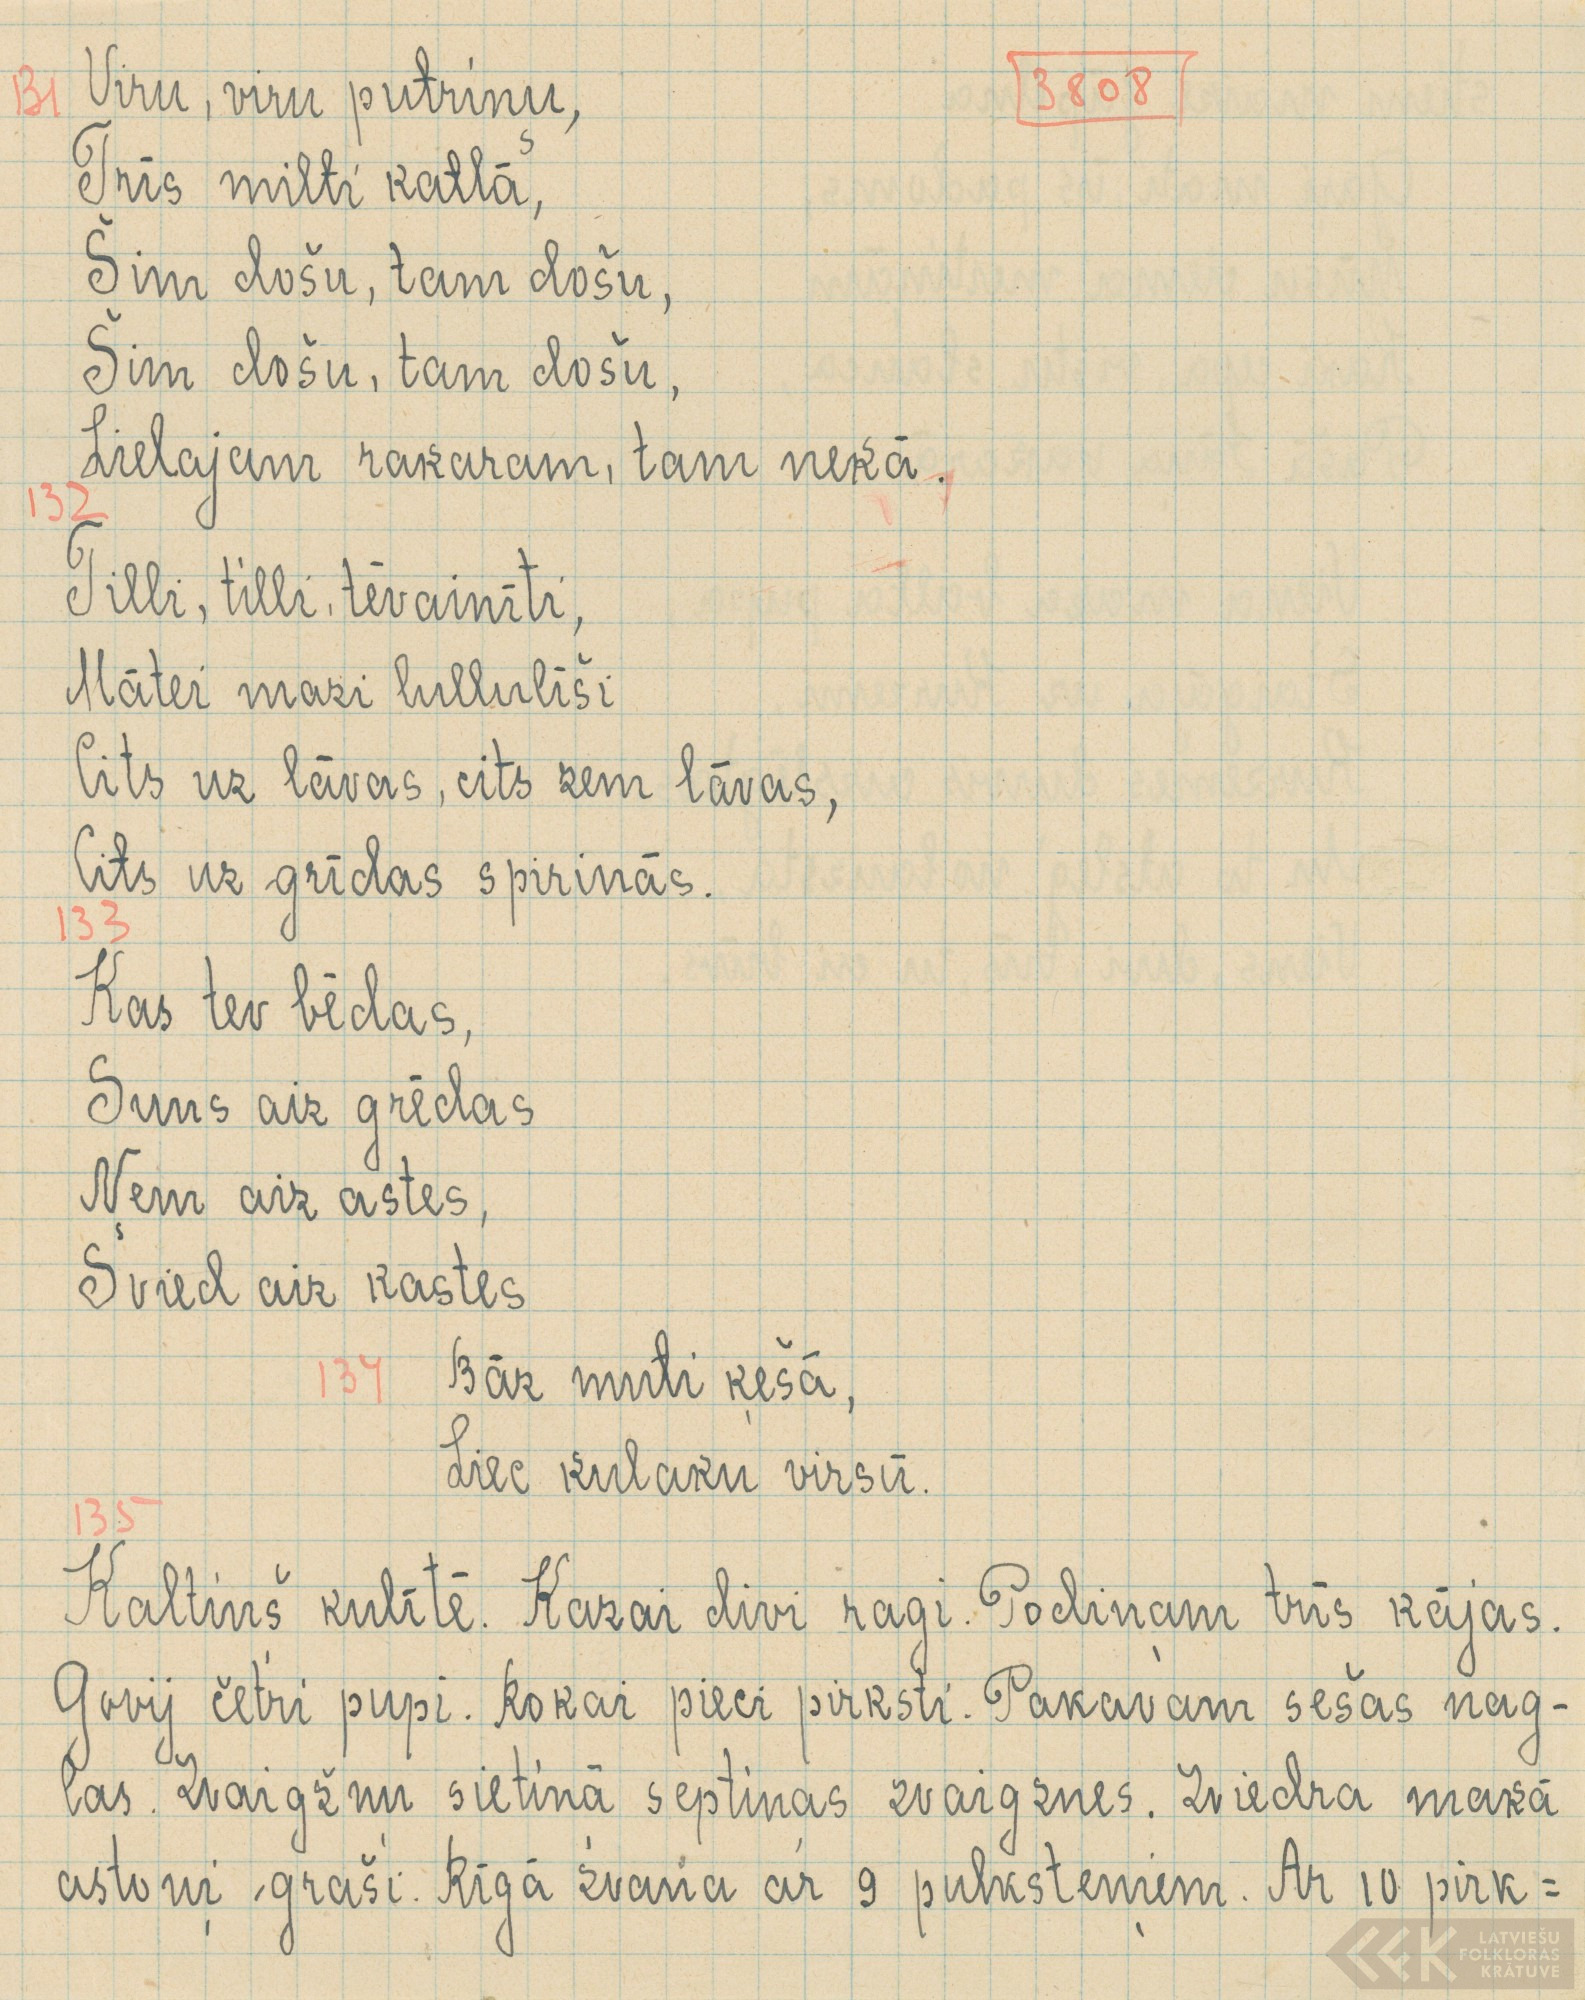 3808
131 Viru, viru putriņu,
Trīs milti katlā,
Šim došu, tam došu,
Šim došu, tam došu,
Lielajam rakaram, tam nekā.
132
Tilli, tilli, tēvainīti,
Mātei mazi lullulīši
Cits uz lāvas, cits zem lāvas,
Cits uz grīdas spirinās.
133
Kas tev bēdas,
Suns aiz grēdas
Ņem aiz astes,
Svied aiz kastes
134 Bāz muti ķešā,
Liec kulaku virsū.
135
Kaltiņš kulītē. Kazai divi ragi. Podiņam trīs kājas.
Govij četri pupi. Rokai pieci pirksti. Pakavam sešas nag-
las. Zvaigžņu sietiņā septiņas zvaigznes. Zviedra makā
astoņi graši. Rīgā zvana ar 9 pulksteņiem. Ar 10 pirk=
LATVIEŠU
FOLKLORAS
KRĀTUVE